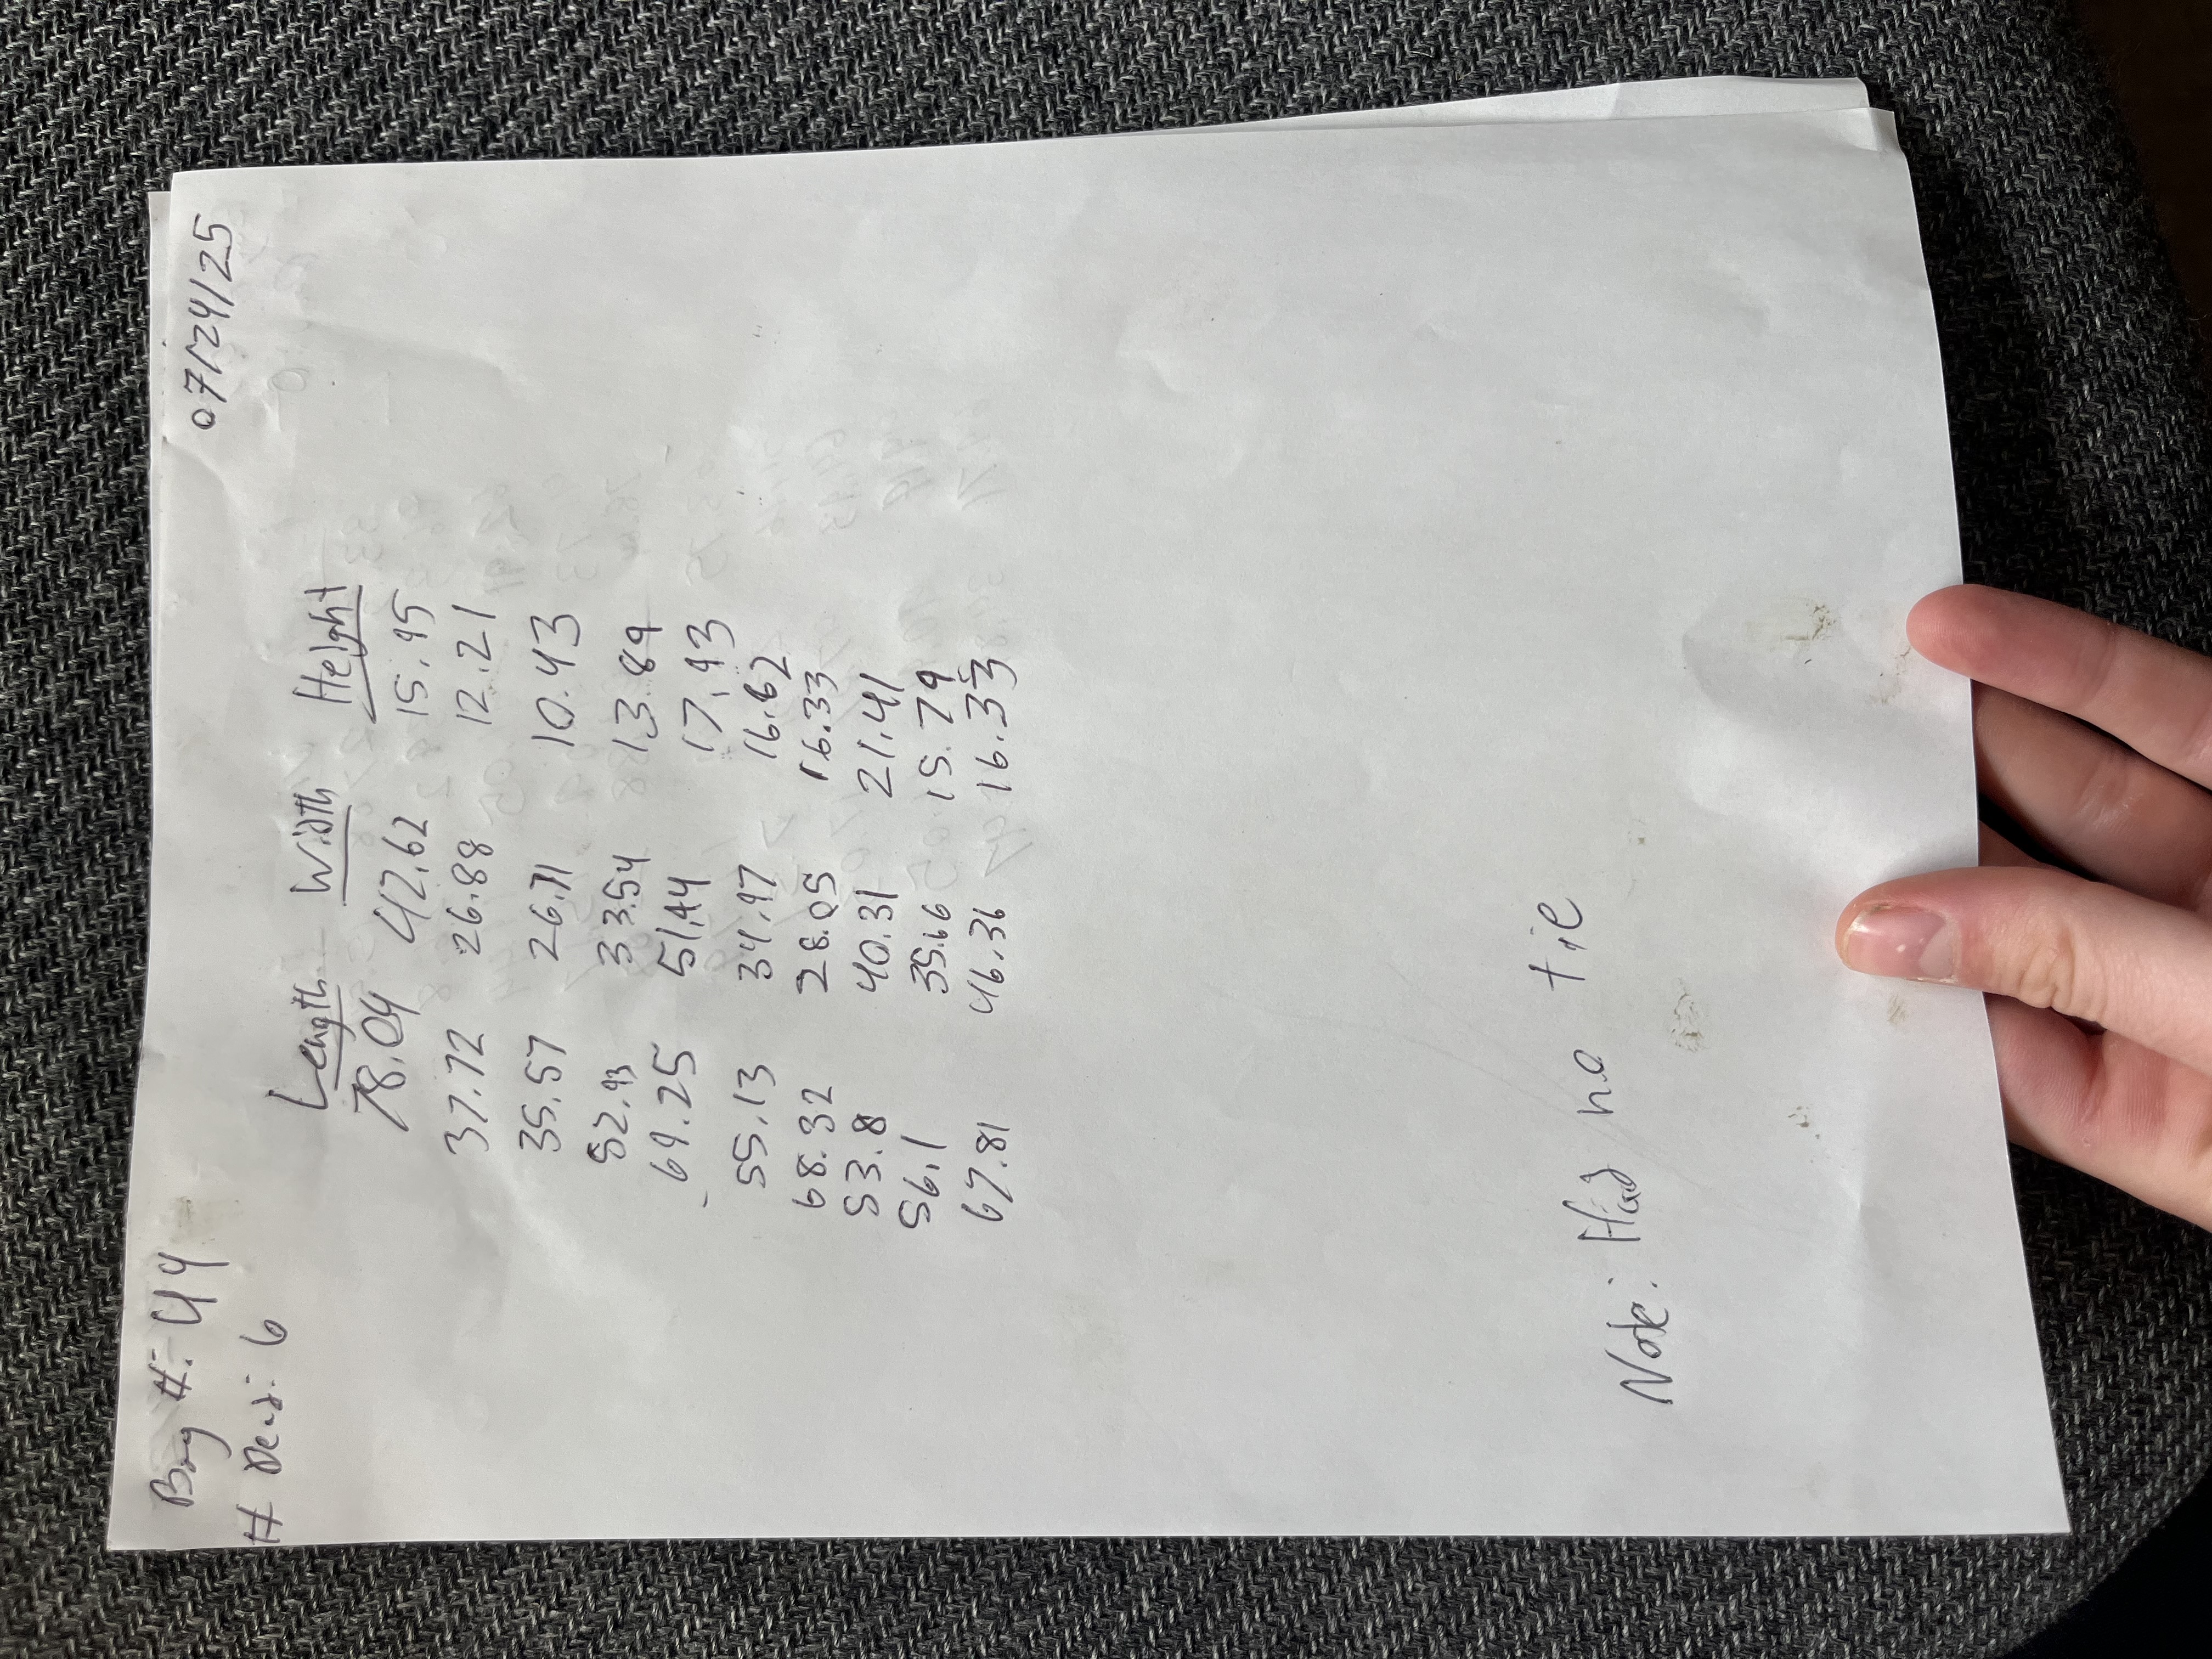 Bag #: 44
07/24/25
# Dead: 6
Length Width Height
78.04 42.62 15.95
37.72 26.88 12.21
35.57 26.71 10.43
52.93 33.54 13.89
69.25 51.94 17.93
55.13 34.97 16.62
68.32 28.05 16.33
53.8 40.31 21.41
56.1 35.66 15.79
67.81 46.36
Note: Had no tie